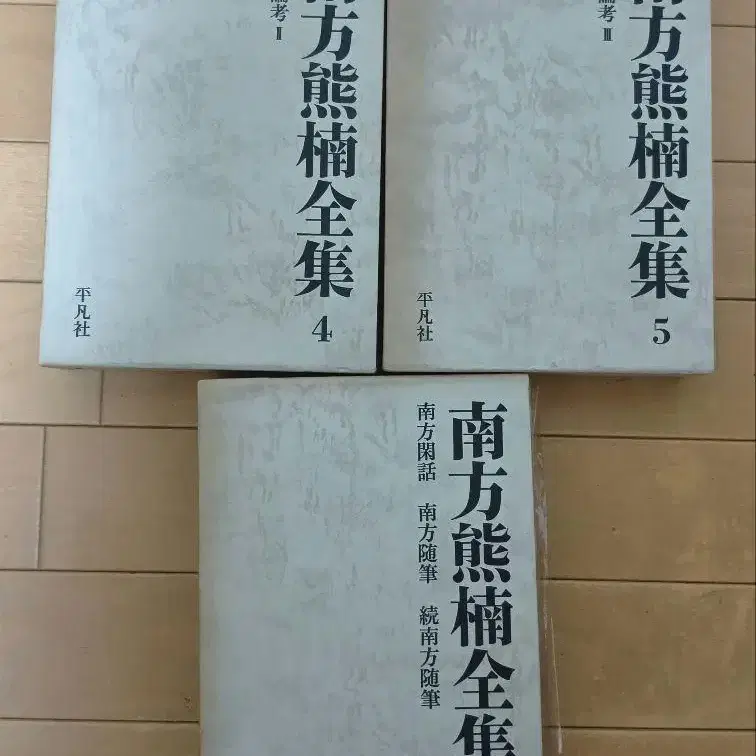 南方熊楠全集
考 Ⅱ
4
平凡社
南方熊楠全集
考 Ⅲ
5
平凡社
南方熊楠全集
南方閑話 南方随筆 続南方随筆